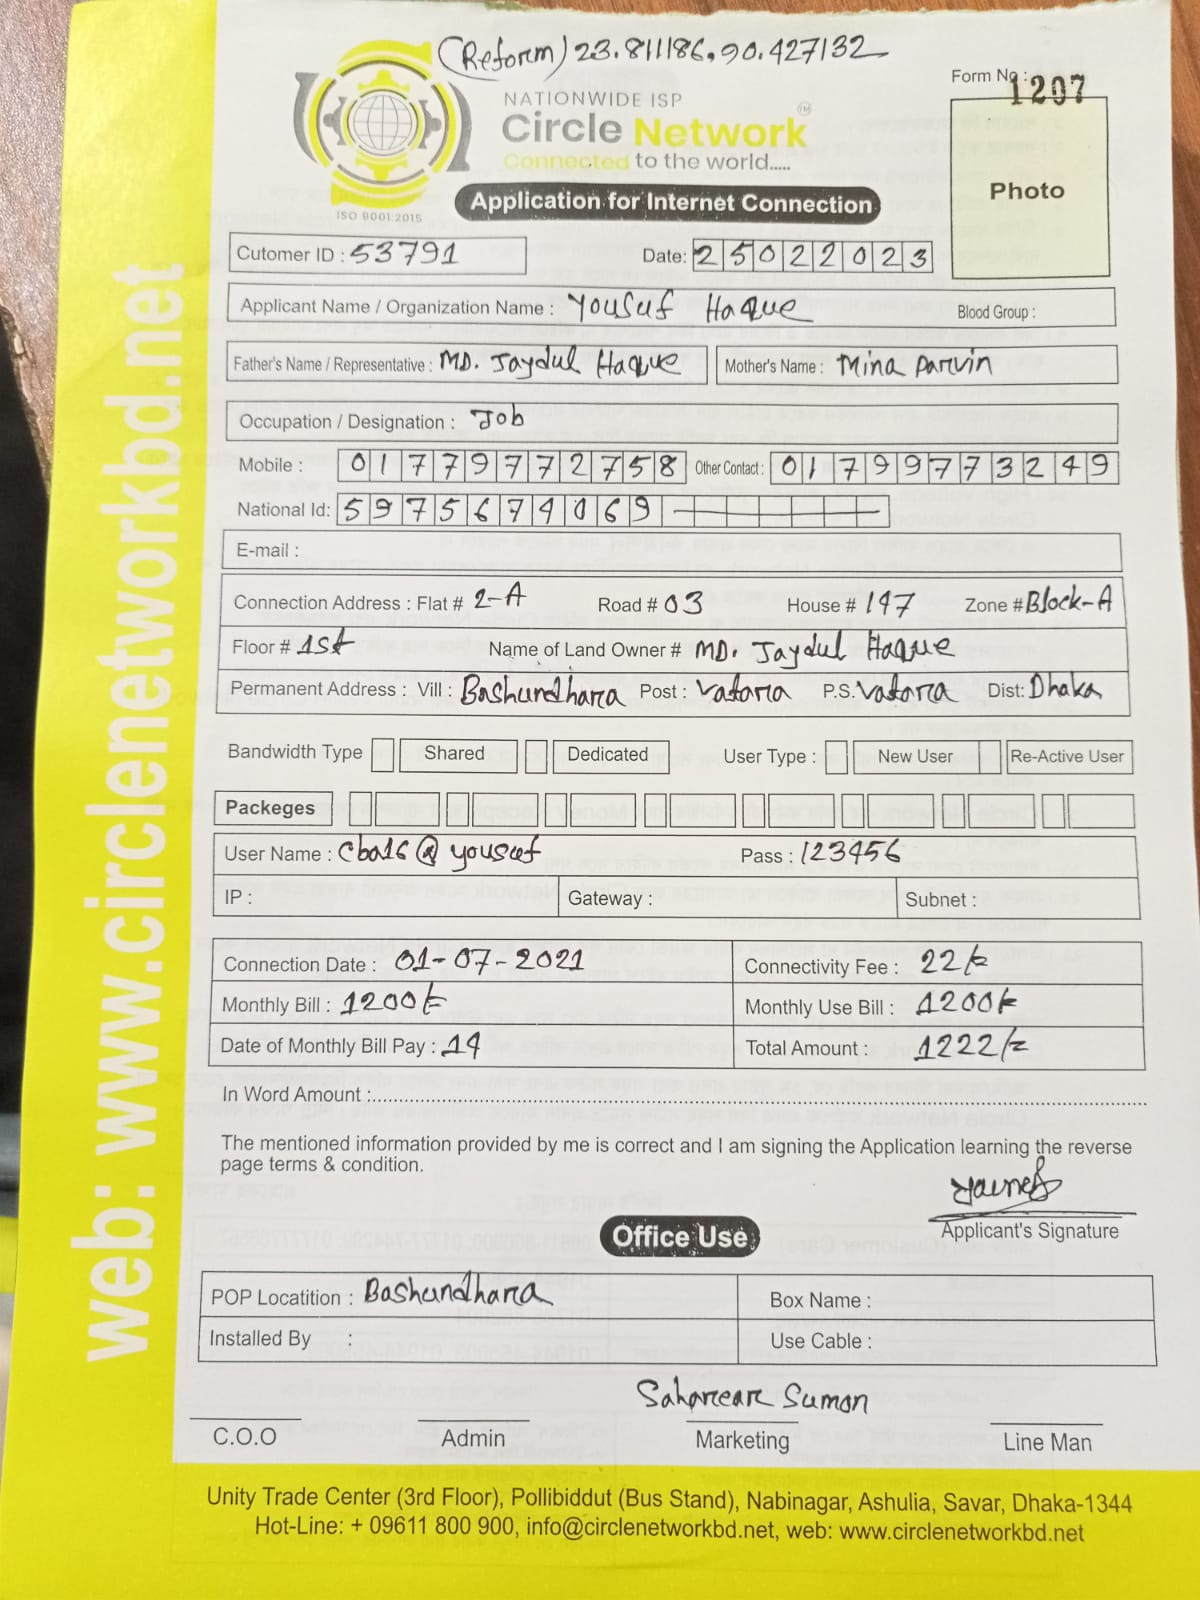 (Reform) 23.811186, 90.427132
Form No : 1207
NATIONWIDE ISP
Circle Network TM
Connected to the world.....
ISO 9001:2015
Application for Internet Connection
Photo
Cutomer ID : 53791 Date: 25022023
Applicant Name / Organization Name : Yousuf Haque Blood Group :
Father's Name / Representative : MD. Jaydul Haque Mother's Name : Mina Parvin
Occupation / Designation : Job
Mobile : 01779772758 Other Contact : 01799773249
National Id: 5975674069
E-mail :
Connection Address : Flat # 2-A Road # 03 House # 147 Zone # Block-A
Floor # 1st Name of Land Owner # MD. Jaydul Haque
Permanent Address : Vill : Bashundhara Post : Vatara P.S. Vatara Dist: Dhaka
Bandwidth Type Shared Dedicated User Type : New User Re-Active User
Packeges
User Name : cba16@yousuf Pass : 123456
IP : Gateway : Subnet :
Connection Date : 01-07-2021 Connectivity Fee : 22/=
Monthly Bill : 1200/= Monthly Use Bill : 1200/=
Date of Monthly Bill Pay : 14 Total Amount : 1222/=
In Word Amount :
The mentioned information provided by me is correct and I am signing the Application learning the reverse
page terms & condition.
Applicant's Signature
Office Use
POP Locatition : Bashundhara Box Name :
Installed By : Use Cable :
Saharear Sumon
C.O.O Admin Marketing Line Man
Unity Trade Center (3rd Floor), Pollibiddut (Bus Stand), Nabinagar, Ashulia, Savar, Dhaka-1344
Hot-Line: + 09611 800 900, info@circlenetworkbd.net, web: www.circlenetworkbd.net
web: www.circlenetworkbd.net